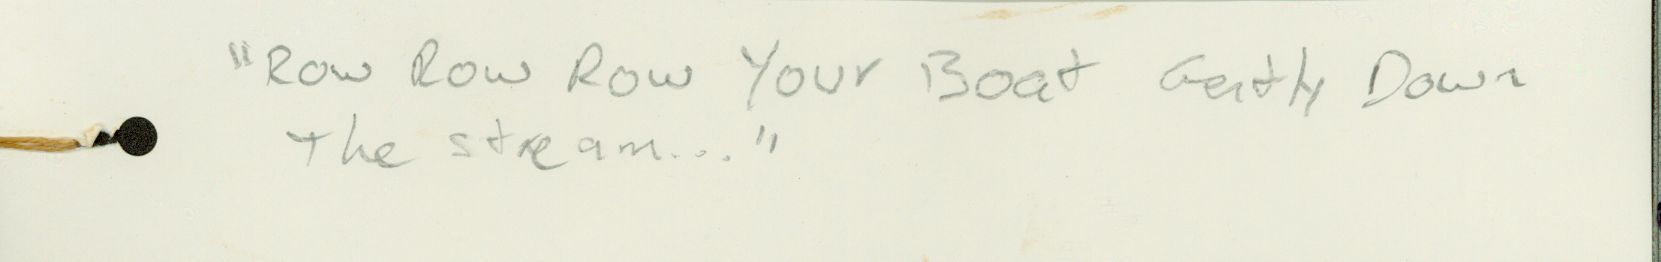 "Row Row Row Your Boat Gently Down
the stream..."